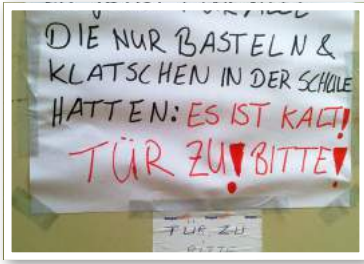 DIE NUR BASTELN &
KLATSCHEN IN DER SCHULE
HATTEN: ES IST KALT!
TÜR ZU! BITTE!
TÜR ZU
BITTE